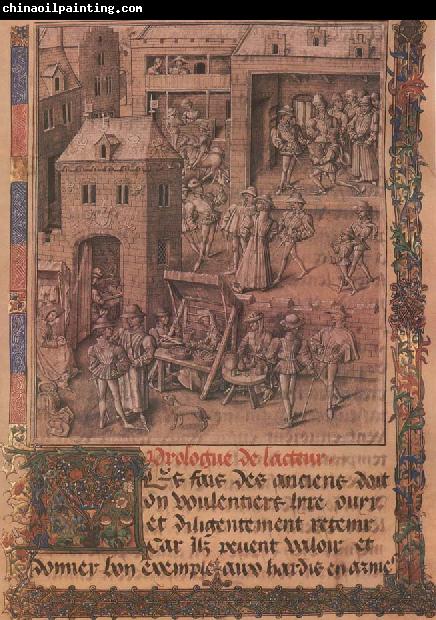 chinaoilpainting.com
Prologue de lacteur
Les fais des anciens doit
on voulentiers lire ouyr
et diligentement retenir
Car ilz peuent valoir et
donner bon exemple aux hardis en armes